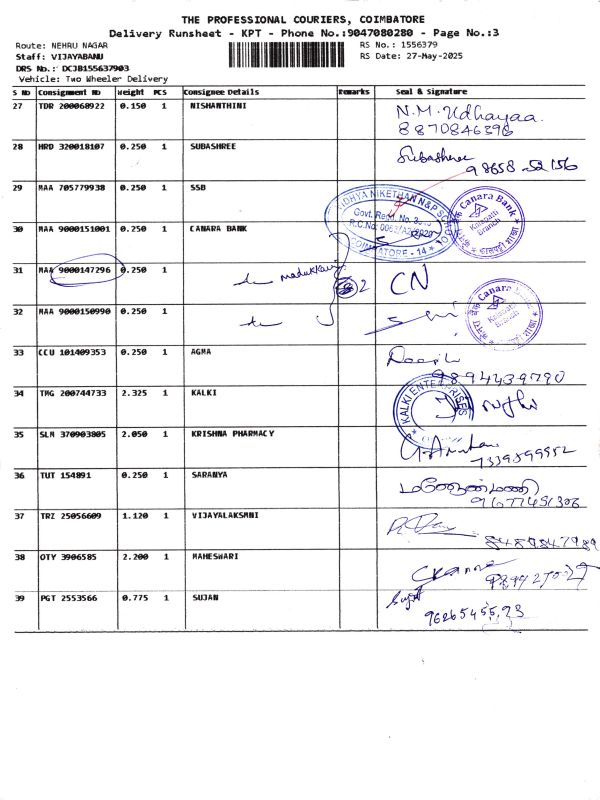 THE PROFESSIONAL COURIERS, COIMBATORE
Delivery Runsheet - KPT - Phone No.:9047080280 - Page No.:3
Route: NEHRU NAGAR
RS No.: 1556379
Staff: VIJAYABANU
RS Date: 27-May-2025
DRS No.: DCJB155637903
Vehicle: Two Wheeler Delivery
S No Consignment No Weight PCS Consignee Details Remarks Seal & Signature
27 TDR 200068922 0.150 1 NISHANTHINI N.M. Udhayaa.
8870846398
28 HRD 320018107 0.250 1 SUBASHREE Subashree
98658 52156
29 MAA 705779938 0.250 1 SSB
VIDHYA NIKETHAN N&P SCHOOL
Govt. Regd. No.
COIMBATORE - 14
Canara Bank
Kalapatti
Branch
30 MAA 9000151001 0.250 1 CANARA BANK
31 MAA 9000147296 0.250 1 CN
32 MAA 9000150990 0.250 1
Canara Bank
Kalapatti
Branch
33 CCU 101409353 0.250 1 AGMA
9894439790
34 TMG 200744733 2.325 1 KALKI
KALKI ENTERPRISES
35 SLM 370903805 2.050 1 KRISHNA PHARMACY
7339899952
36 TUT 154891 0.250 1 SARANYA
37 TRZ 25056609 1.120 1 VIJAYALAKSMNI
38 OTY 3906585 2.200 1 MAHESWARI
39 PGT 2553566 0.775 1 SUJAN